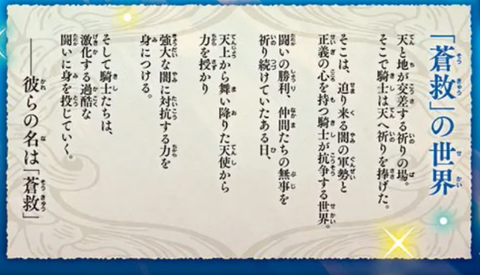 「蒼救」の世界
天と地が交差する祈りの場。
そこで騎士は天へ祈りを捧げた。
そこは、迫り来る闇の軍勢と
正義の心を持つ騎士が抗争する世界。
闘いの勝利、仲間たちの無事を
祈り続けていたある日、
天上から舞い降りた天使から
力を授かり
強大な闇に対抗する力を
身につける。
そして騎士たちは、
激化する過酷な
闘いに身を投じていく。
――彼らの名は「蒼救」